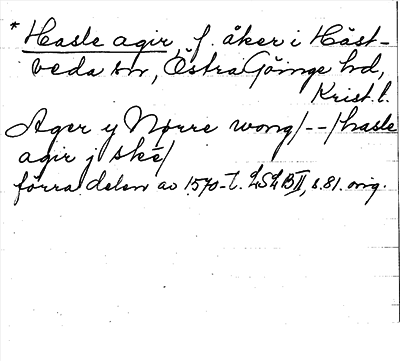 * Hasle agir, f. åker i Häst-
veda sn, Östra Göinge hd,
Krist. l.
Ager y Nørre wong/--/hasle
agir j ské/
förra delen av 1570-t. LSLB II, s. 81. orig.